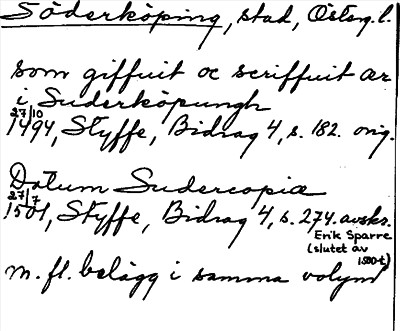 Söderköping, stad, Österg. l.
som giffuit oc scriffuit ær
i Suderköpungh
27/10
1494, Styffe, Bidrag 4, s. 182. orig.
Datum Sudercopiæ
27/7
1501, Styffe, Bidrag 4, s. 274. avskr.
Erik Sparre
(slutet av
1500-t.)
m. fl. belägg i samma volym